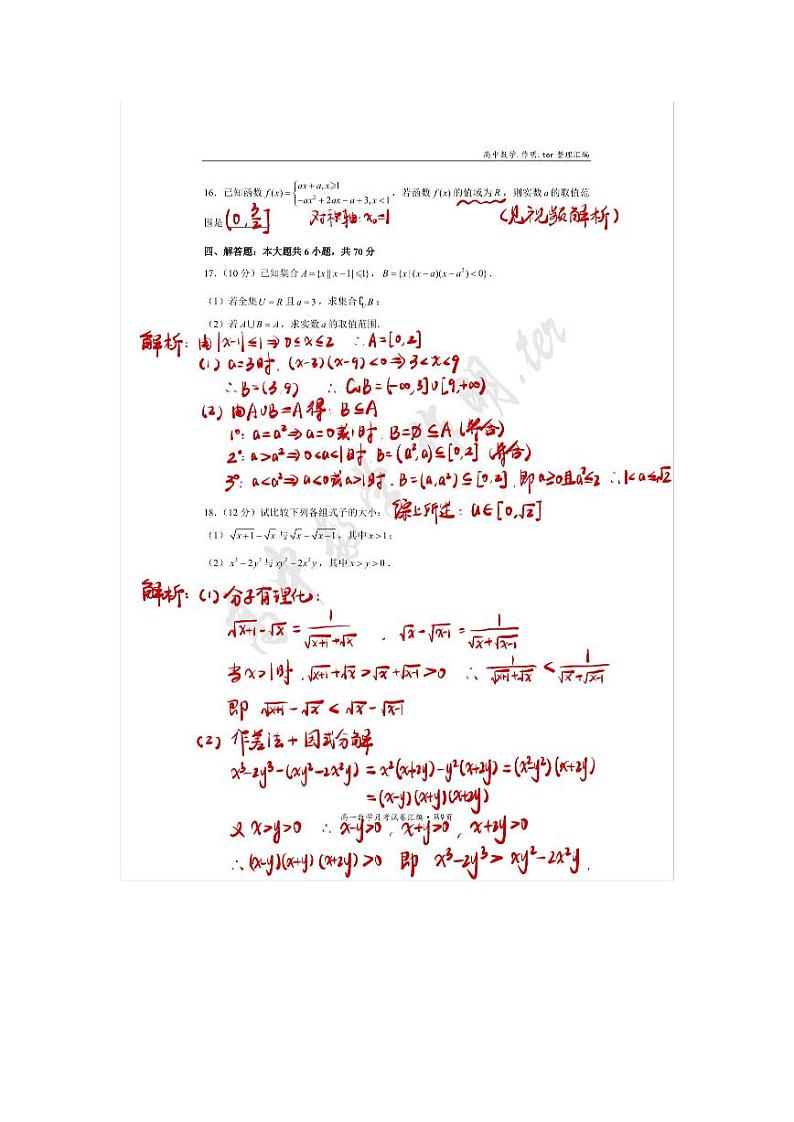 高中数学.作明.ter 整理汇编
16. 已知函数 f(x)={ax+a,x⩾1 −ax²+2ax−a+3,x<1 , 若函数 f(x) 的值域为 R , 则实数 a 的取值范
围是 (0, 3/2] 对称轴: x₀=1 (见视频解析)
四、解答题: 本大题共 6 小题, 共 70 分
17. (10 分) 已知集合 A={x||x−1|⩽1} , B={x|(x−a)(x−a²)<0} .
(1) 若全集 U=R 且 a=3 , 求集合 ∁ᵤB ;
(2) 若 A∪B=A , 求实数 a 的取值范围.
解析: 由|x-1|≤1⇒0≤x≤2 ∴A=[0,2]
(1) a=3时, (x-3)(x-9)<0⇒3<x<9
∴B=(3,9) ∴ CuB=(-∞,3]∪[9,+∞)
(2) 由A∪B=A得: B⊆A
1°: a=a²⇒a=0或1时, B=∅⊆A (符合)
2°: a>a²⇒0<a<1时, B=(a²,a)⊆[0,2] (符合)
3°: a<a²⇒a<0或a>1时, B=(a,a²)⊆[0,2], 即a≥0且a²≤2 ∴1<a≤√2
18. (12 分) 试比较下列各组式子的大小: 综上所述: a∈[0,√2]
(1) √x+1−√x 与 √x−√x−1 , 其中 x>1 ;
(2) x³−2y³ 与 xy²−2x²y , 其中 x>y>0 .
解析: (1) 分子有理化:
√x+1-√x = 1/(√x+1+√x) , √x-√x-1 = 1/(√x+√x-1)
当x>1时, √x+1+√x>√x+√x-1>0 ∴ 1/(√x+1+√x) < 1/(√x+√x-1)
即 √x+1-√x < √x-√x-1
(2) 作差法+因式分解
x³-2y³-(xy²-2x²y)=x²(x+2y)-y²(x+2y)=(x²-y²)(x+2y)
=(x-y)(x+y)(x+2y)
高一数学月考试卷汇编·第9页
又 x>y>0 ∴ x-y>0, x+y>0, x+2y>0
∴(x-y)(x+y)(x+2y)>0 即 x³-2y³> xy²-2x²y.